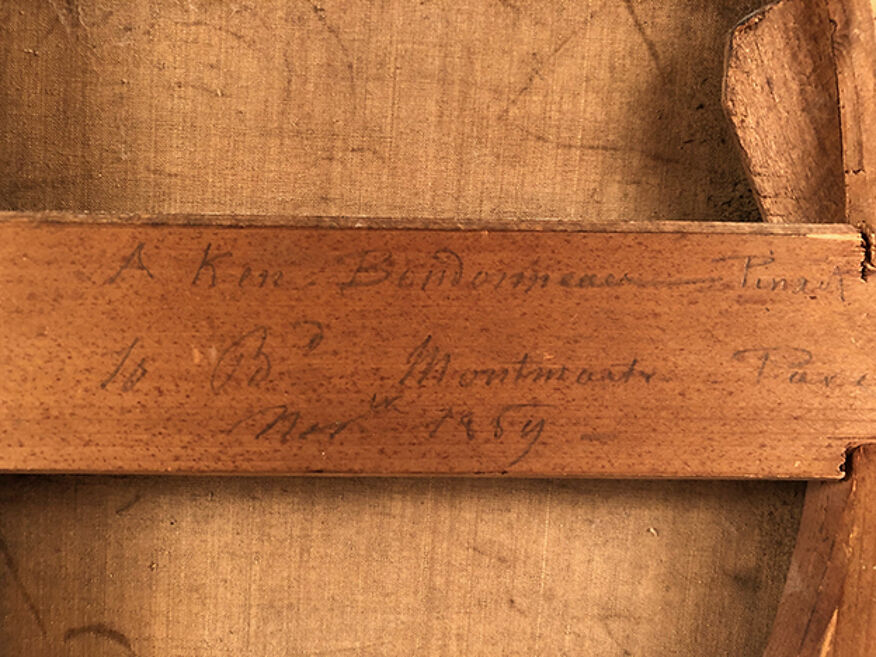 A Ken Bondonneau — Pinxit
16 Bd Montmartr Paris
Nov 1859 —